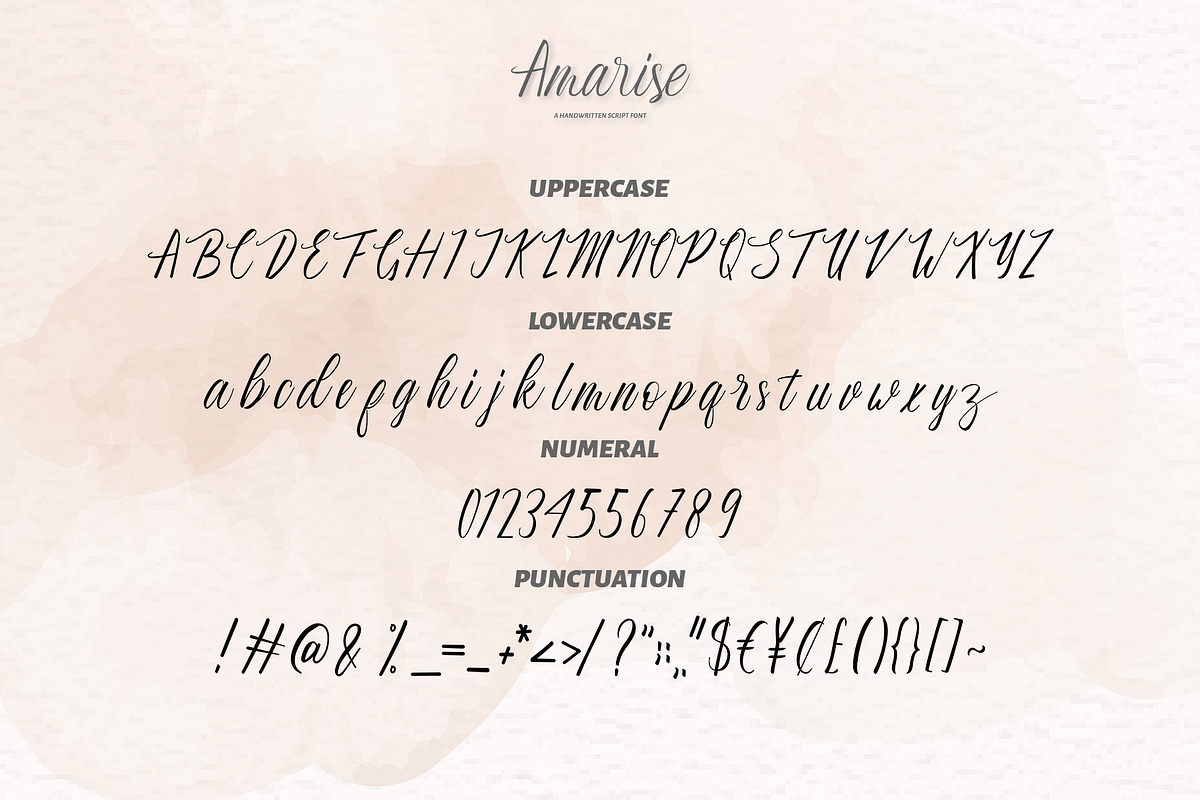 Amarise
A HANDWRITTEN SCRIPT FONT
UPPERCASE
ABCDEFGHIJKLMNOPQSTUVWXYZ
LOWERCASE
abcdefghijklmnopqrstuvwxyz
NUMERAL
01234556789
PUNCTUATION
!#@& %_=-+*<>/?":;„"$€¥¢£(){}[]~